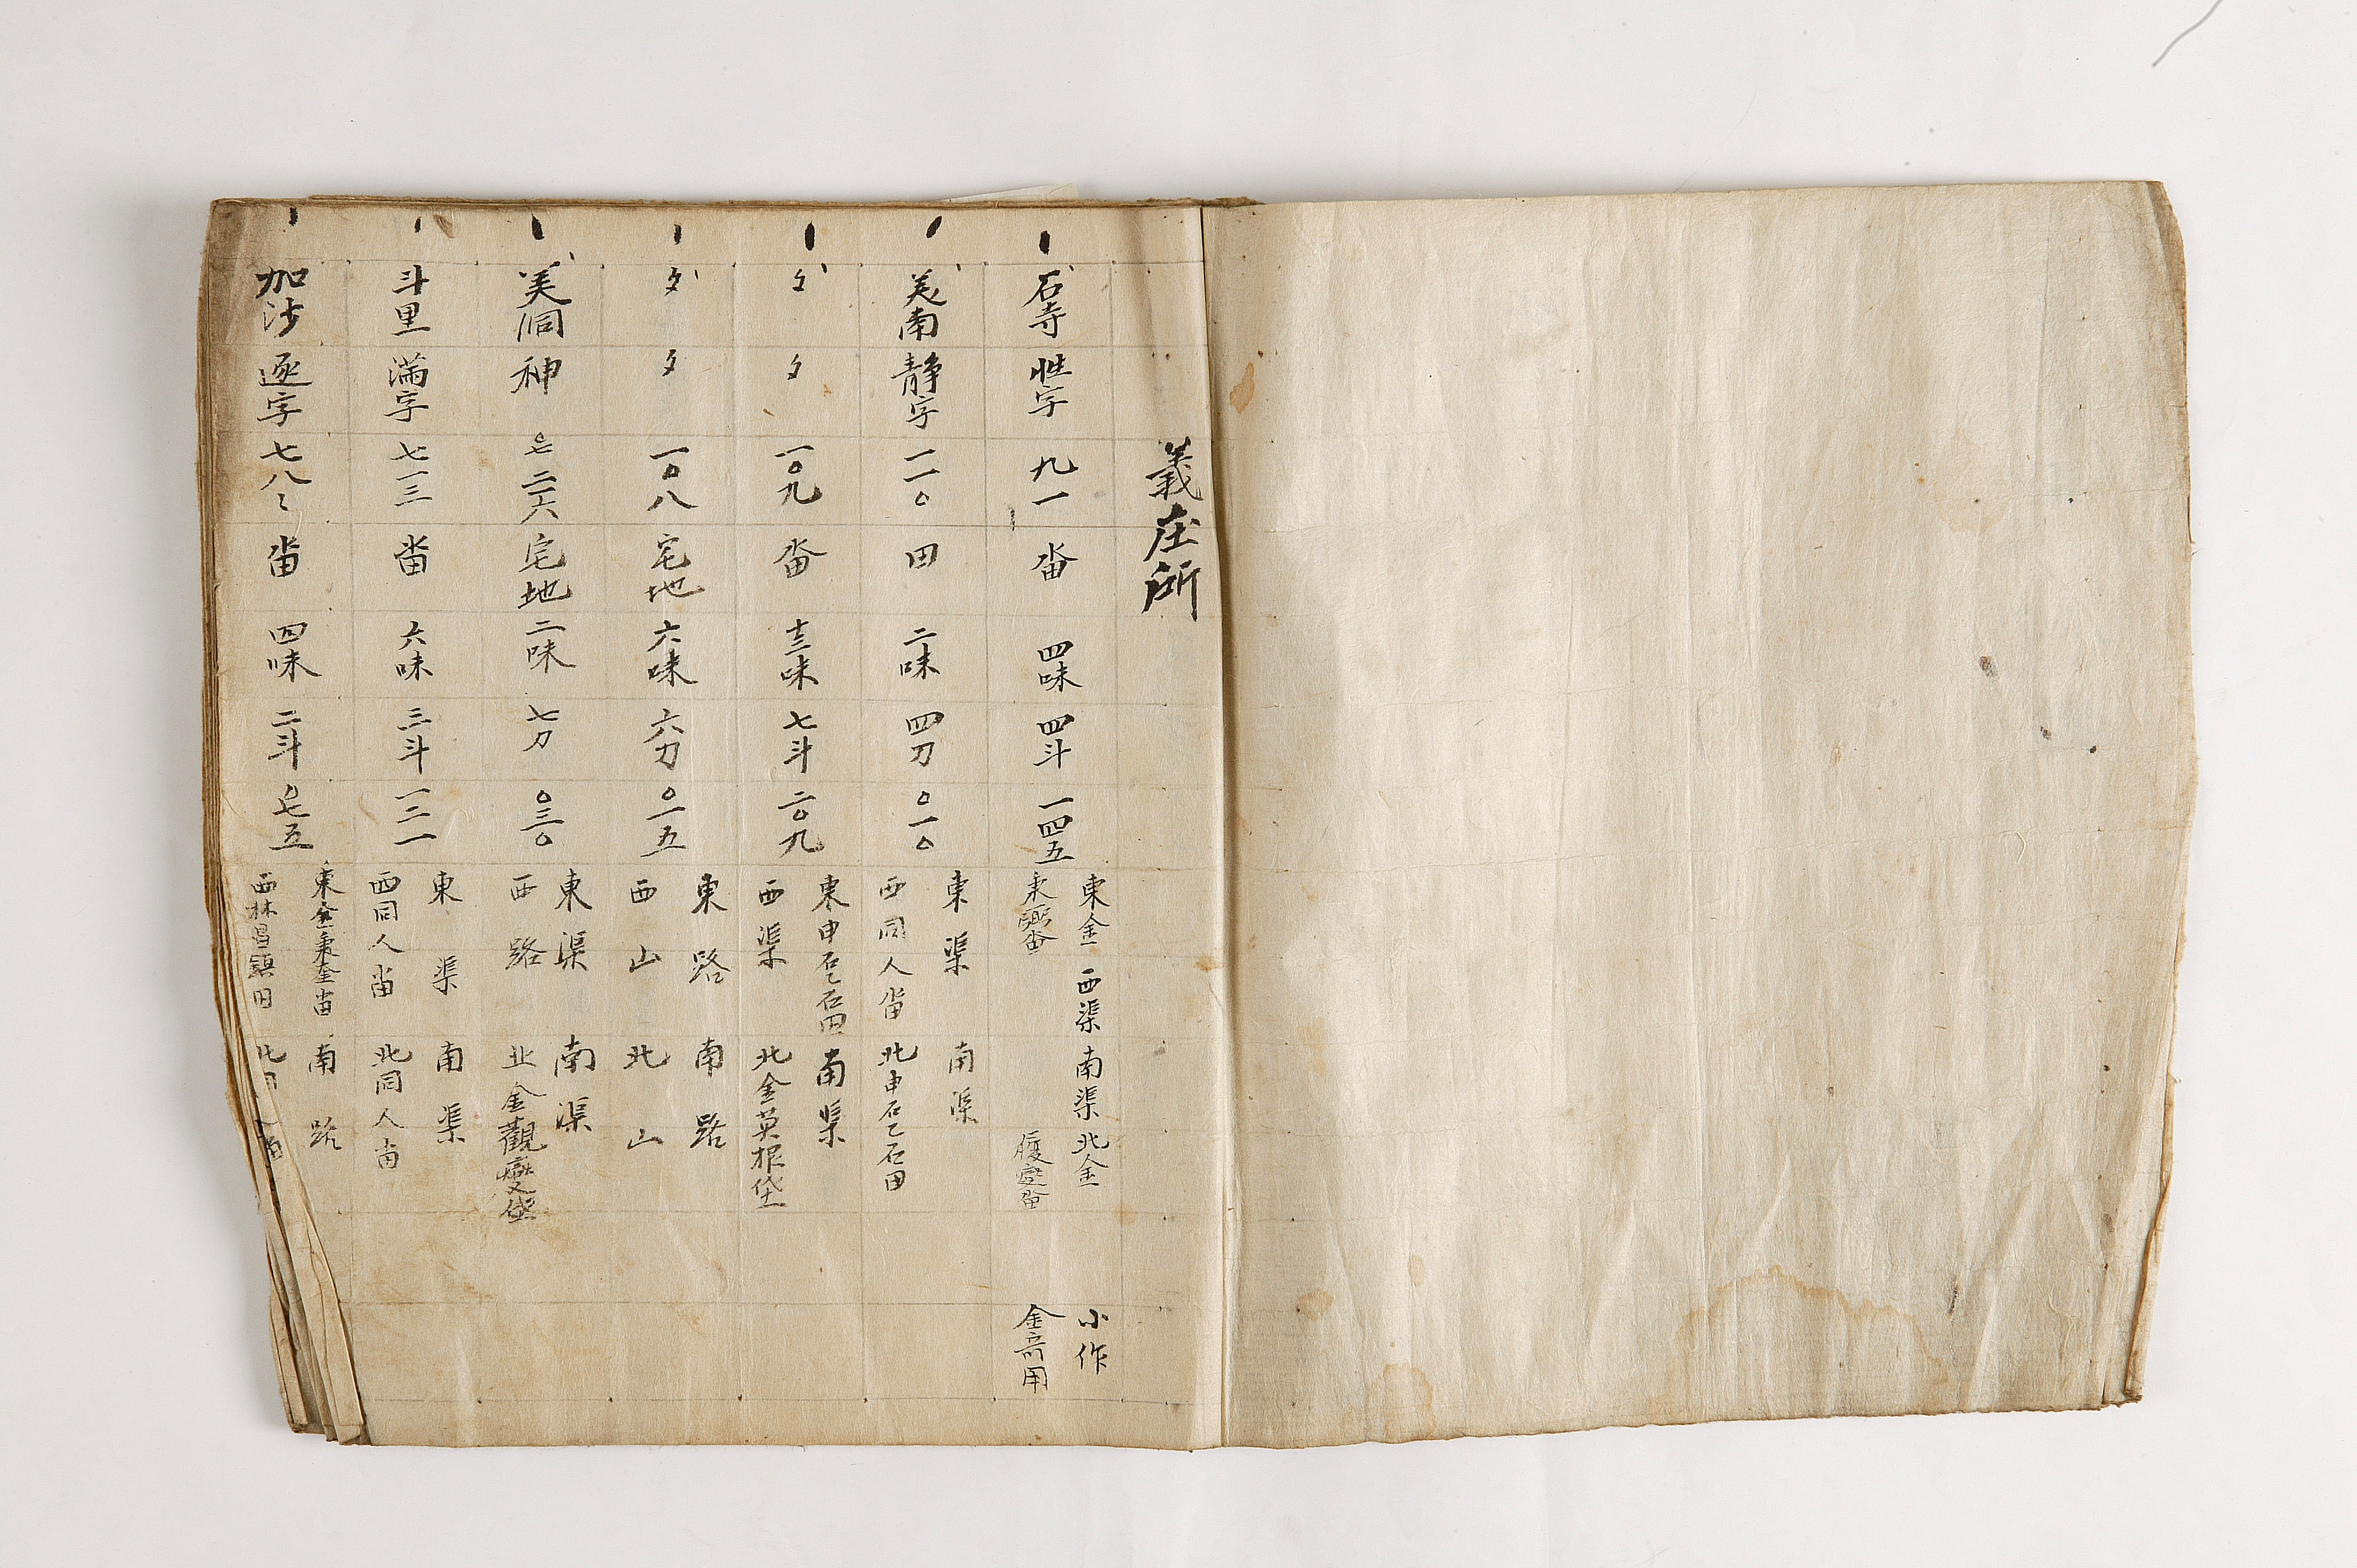 義庄所
石寺 性字 九一 畓 四味 四斗 一四五 東金 西渠 南渠 北金 小作
秉 畓 金 用
美南 静字 一一〇 田 二味 四刀 〇一〇 東渠 南渠
西同人畓 北申石乙石田
〃 〃 一〇九 畓 十三味 七斗 二〇九 東申石乙石田 南渠
西渠 北金英根垈
〃 〃 一〇八 宅地 六味 六刀 〇一五 東路 南路
西山 北山
美洞 神 〇七二六 宅地 二味 七刀 〇三〇 東渠 南渠
西路 北金觀燮垈
斗里 滿字 七一三 畓 六味 三斗 一三一 東渠 南渠
西同人畓 北同人畓
加沙 逐字 七八〻 畓 四味 二斗 〇七五 東金秉奎畓 南路
西林昌鎮田